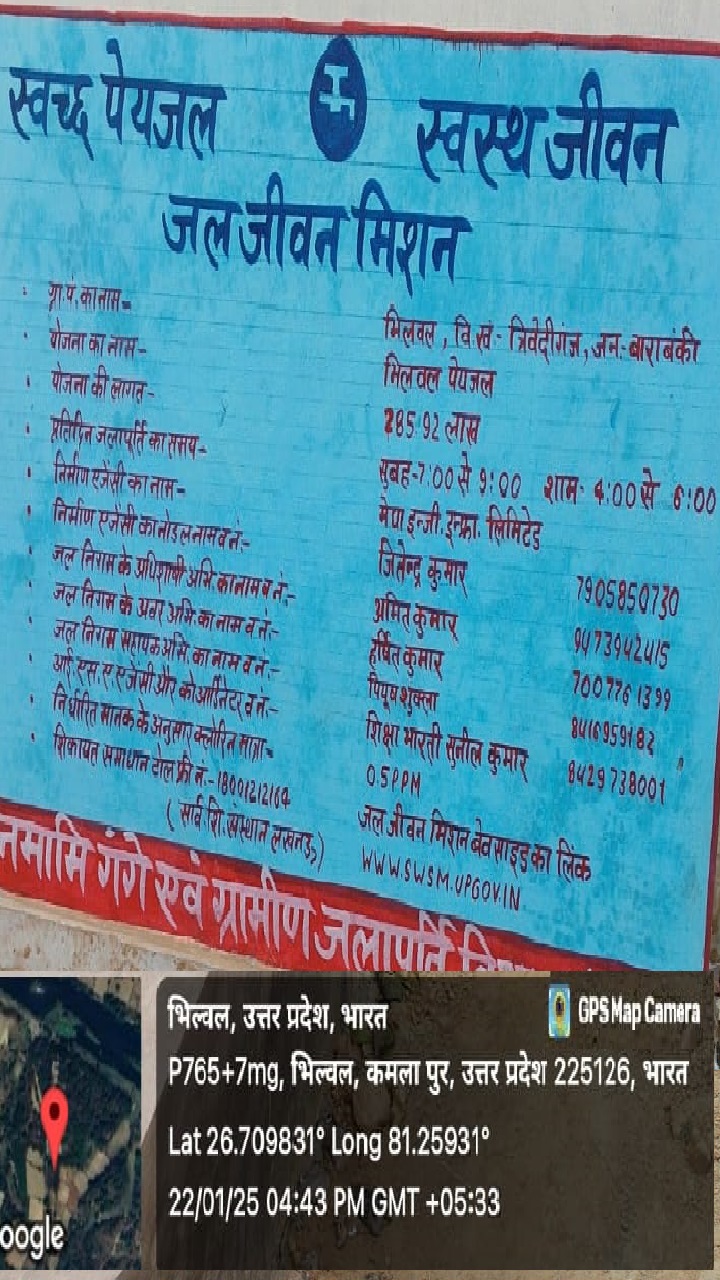 स्वच्छ पेयजल स्वस्थ जीवन
जल जीवन मिशन
ग्रा.पं. का नाम- भिलवल, वि.खं- त्रिवेदीगंज, जन.- बाराबंकी
योजना का नाम- भिलवल पेयजल
योजना की लागत- 285.92 लाख
प्रतिदिन जलापूर्ति का समय- सुबह-7:00 से 9:00 शाम- 4:00 से 6:00
निर्माण एजेंसी का नाम- मेघा इन्जी. इन्फ्रा. लिमिटेड
निर्माण एजेंसी का नोडल नाम व नं.- जितेन्द्र कुमार 7905850730
जल निगम के अधिशाषी अभि. का नाम व नं.- अमित कुमार 9473942415
जल निगम के अवर अभि. का नाम व नं.- हर्षित कुमार 7007761399
जल निगम सहायक अभि. का नाम व नं.- पियूष शुक्ला 8416959182
आई.एस.ए एजेंसी और कोआर्डिनेटर व नं.- शिक्षा भारती सुनील कुमार 8429738001
निर्धारित मानक के अनुसार क्लोरिन मात्रा- 0.5PPM
शिकायत समाधान टोल फ्री नं.-18001212164 जल जीवन मिशन बेवसाइड का लिंक
(सार्व.शि.संस्थान लखनऊ) WWW.SWSM.UPGOV.IN
नमामि गंगे एवं ग्रामीण जलापूर्ति
GPS Map Camera
भिल्वल, उत्तर प्रदेश, भारत
P765+7mg, भिल्वल, कमला पुर, उत्तर प्रदेश 225126, भारत
Lat 26.709831° Long 81.25931°
22/01/25 04:43 PM GMT +05:33
oogle